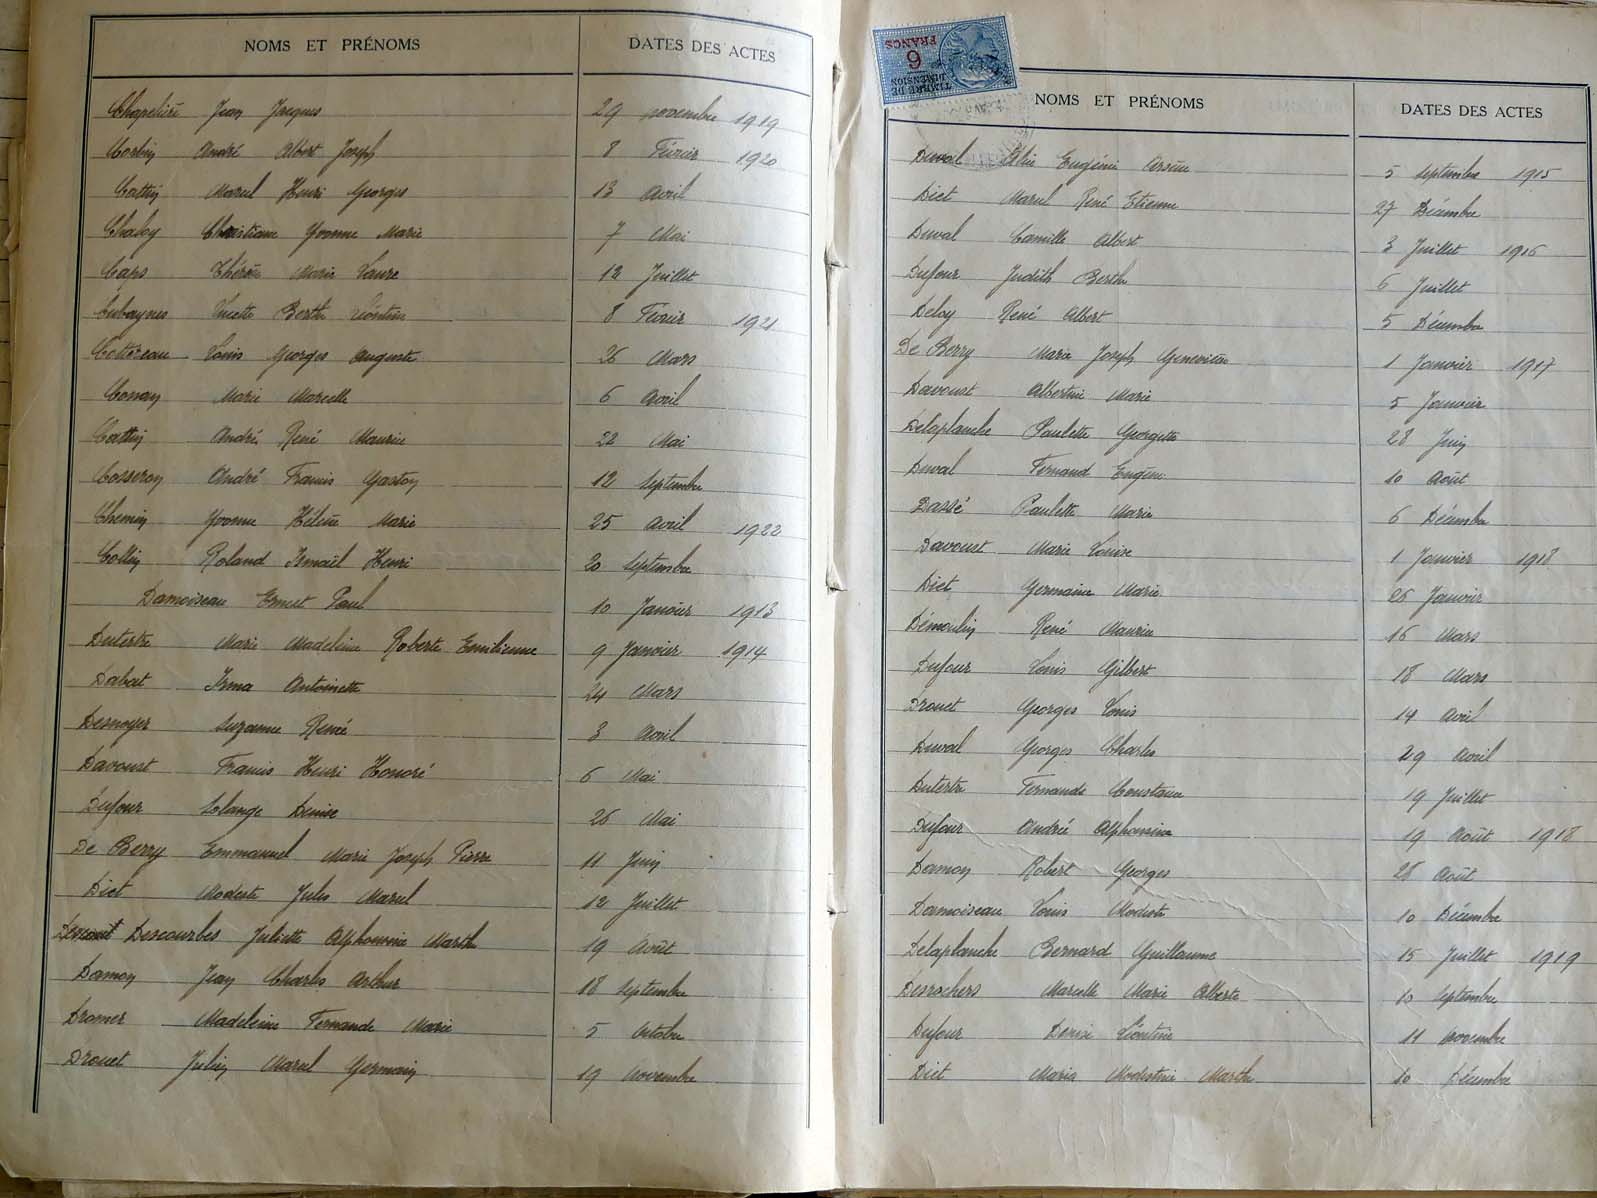 NOMS ET PRÉNOMS DATES DES ACTES
Chapelière Jean Jacques 29 novembre 1919
Corbin André Albert Joseph 8 Février 1920
Cottin Marcel Henri Georges 13 Avril
Chaloy Christiane Yvonne Marie 7 Mai
Caps Thérèse Marie Laure 12 Juillet
Cubaynes Lucette Berthe Léontine 8 Février 1921
Cottereau Louis Georges Auguste 26 Mars
Conan Marie Marcelle 6 Avril
Cottin André René Maurice 22 Mai
Cosseron André Francis Gaston 12 Septembre
Chemin Yvonne Hélène Marie 25 Avril 1922
Collin Roland Ismaël Henri 20 Septembre
Damoiseau Ernest Paul 10 Janvier 1913
Dutertre Marie Madeleine Roberte Emilienne 9 Janvier 1914
Dabat Irma Antoinette 24 Mars
Desnoyer Suzanne Renée 3 Avril
Davoust Francis Henri Honoré 6 Mai
Dufour Solange Denise 26 Mai
De Berry Emmanuel Marie Joseph Pierre 11 Juin
Diet Modeste Jules Marcel 12 Juillet
Descourbes Juliette Alphonsine Marthe 19 Août
Damon Jean Charles Arthur 18 Septembre
Dromer Madeleine Fernande Marie 5 Octobre
Drouet Julien Marcel Germain 19 Novembre
TIMBRE DE
DIMENSION
6
FRANCS
NOMS ET PRÉNOMS DATES DES ACTES
Duval Eugénie Arsène 5 Septembre 1915
Diet Marcel René Etienne 27 Décembre
Duval Camille Albert 3 Juillet 1916
Dufour Judith Berthe 6 Juillet
Deloy René Albert 5 Décembre
De Berry Marie Joseph Geneviève 1 Janvier 1917
Davoust Albertine Marie 5 Janvier
Delaplanche Paulette Georgette 28 Juin
Duval Fernand Eugène 10 Août
Dassé Paulette Marie 6 Décembre
Davoust Marie Louise 1 Janvier 1918
Diet Germaine Marie 26 Janvier
Démoulin René Maurice 16 Mars
Dufour Louis Gilbert 18 Mars
Drouet Georges Louis 14 Avril
Duval Georges Charles 29 Avril
Dutertre Fernande Constance 19 Juillet
Dufour André Alphonsine 19 Août 1918
Damon Robert Georges 28 Août
Damoiseau Louis Modeste 10 Décembre
Delaplanche Bernard Guillaume 15 Juillet 1919
Desrochers Marcelle Marie Alberte 10 Septembre
Dufour Denise Léontine 11 novembre
Diet Maria Modestine Marthe 10 Décembre